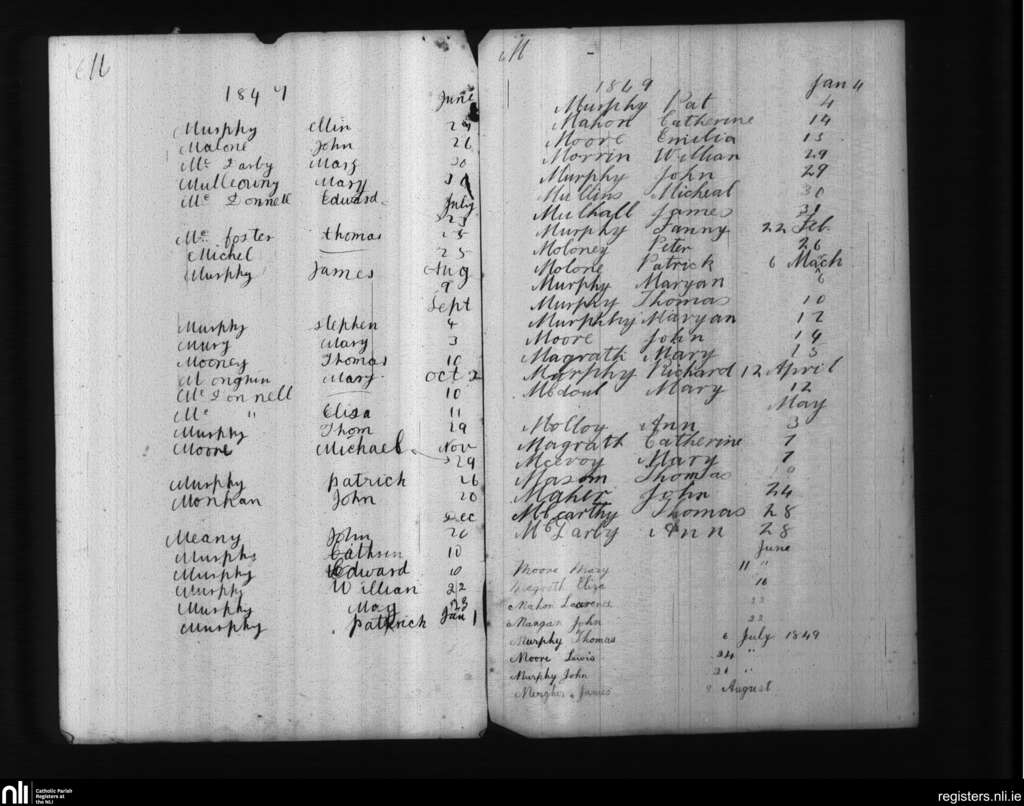 M
1847
June
Murphy Min 24
Malone John 26
Mc Darby Marg 30
Mulleowny Mary 30
Mc Donnell Edward July
23
Mc foster thomas 25
Michel 25
Murphy James Aug
9
Sept
Murphy stephen 4
Mury Mary 3
Mooney Thomas 10
Mary oct 2
Mc Donnell 10
Mc " Elisa 11
Murphy Thom 29
Moore Michael Nov
29
Murphy patrick 26
Monkan John 20
Dec
Meany John 20
Murphs Cathrin 10
Murphy Edward 10
Murphy Willian 22
Murphy Mag 23
Murphy patkrick Jan 1
M
1849 Jan 4
Murphy Pat 4
Mahon Catherine 14
Moore Emilia 15
Morrin Willian 29
Murphy John 29
Mullins Micheal 30
Mulhall James 31
Murphy Fanny 22 Feb.
Moloney Peter 26
Molone Patrick 6 Mach
Murphy Maryan 6
Murphy Thomas 10
Murphhy Maryan 12
Moore John 14
Magrath Mary 23
Murphy Richard 12 April
Mcdoul Mary 12
May
Molloy Ann 3
Magrath Catherine 7
Mcevoy Mary 7
Mason Thomas
Maher John 24
McCarthy Thomas 28
McDarby Ann 28
June
Moore Mary 11 "
Magrath Eliza 16
Mahon Lawrence 22
Mangan John 22
Murphy Thomas 6 July 1849
Moore Lewis 24 "
Murphy John 21 "
James 8 August
nli Catholic Parish
Registers at
the NLI
registers.nli.ie